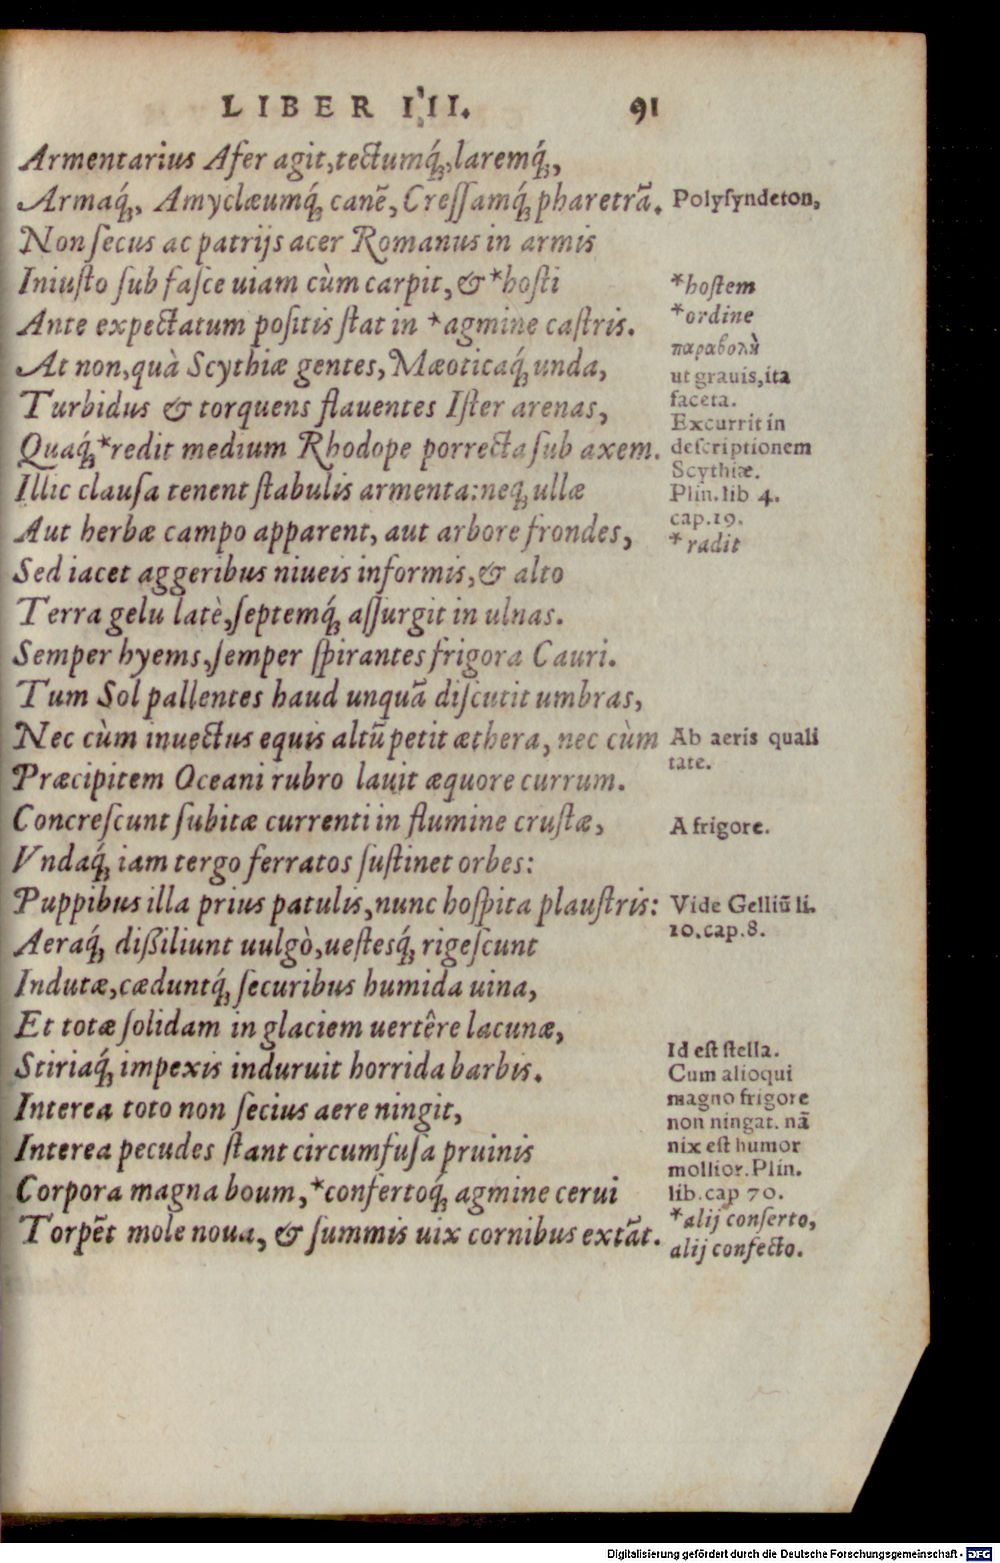 LIBER III. 91
Armentarius Afer agit, tectumq́;, laremq́;,
Armaq́;, Amyclæumq́; canē, Cressamq́; pharetrā.
Polysyndeton,
Non secus ac patrijs acer Romanus in armis
Iniusto sub fasce uiam cùm carpit, & *hosti
*hostem
Ante expectatum positis stat in *agmine castris.
*ordine
παραβολὴ
At non, quà Scythiæ gentes, Mæoticaq́; unda,
ut grauis, ita
faceta.
Turbidus & torquens flauentes Ister arenas,
Excurrit in
Quaq́; *redit medium Rhodope porrecta sub axem.
descriptionem
Scythiæ.
Illic clausa tenent stabulis armenta: neq; ullæ
Plin. lib 4.
cap. 19.
Aut herbæ campo apparent, aut arbore frondes,
*radit
Sed iacet aggeribus niueis informis, & alto
Terra gelu latè, septemq́; assurgit in ulnas.
Semper hyems, semper spirantes frigora Cauri.
Tum Sol pallentes haud unquā discutit umbras,
Nec cùm inuectus equis altū petit æthera, nec cùm
Ab aeris quali
tate.
Præcipitem Oceani rubro lauit æquore currum.
Concrescunt subitæ currenti in flumine crustæ,
A frigore.
Vndaq́; iam tergo ferratos sustinet orbes:
Puppibus illa prius patulis, nunc hospita plaustris:
Vide Gelliū li.
10. cap. 8.
Aeraq́; dißiliunt uulgò, uestesq́; rigescunt
Indutæ, cæduntq́; securibus humida uina,
Et totæ solidam in glaciem uertêre lacunæ,
Stiriaq́; impexis induruit horrida barbis.
Id est stella.
Cum alioqui
magno frigore
Interea toto non secius aere ningit,
non ningat. nā
Interea pecudes stant circumfusa pruinis
nix est humor
mollior. Plin.
lib. cap 70.
Corpora magna boum, *confertoq́; agmine cerui
*alij conserto,
Torpēt mole noua, & summis uix cornibus extāt.
alij confecto.
Digitalisierung gefördert durch die Deutsche Forschungsgemeinschaft - DFG